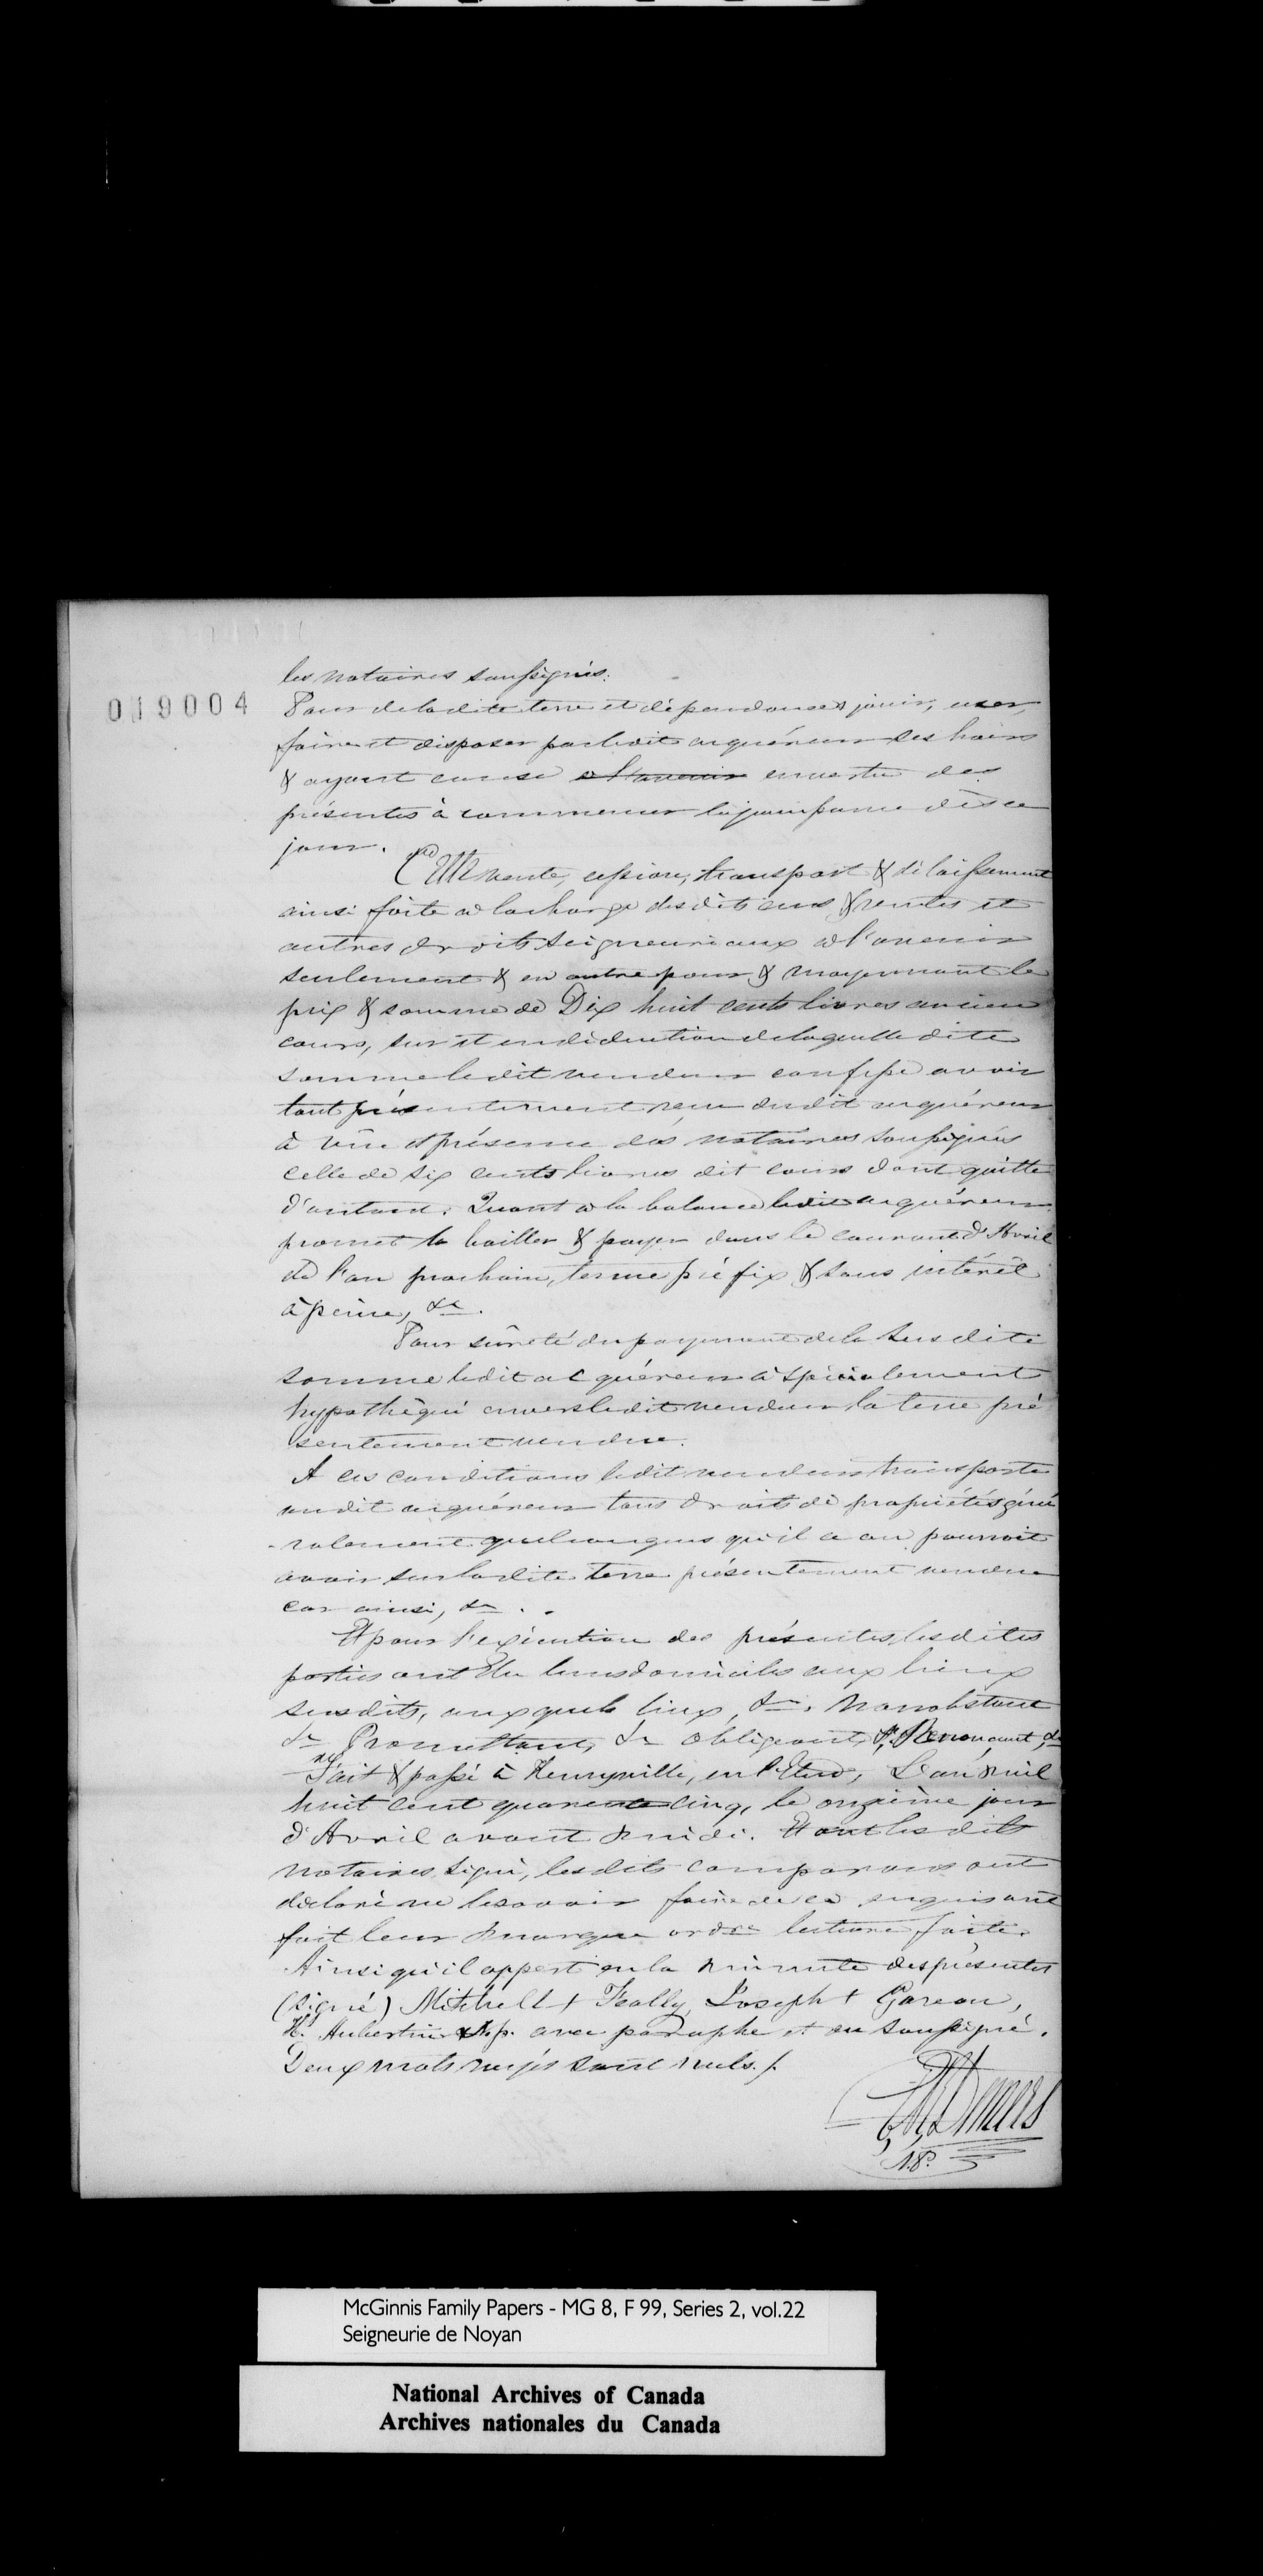 les notaires soussignés.
019004
Pour de ladite terre et dépendances jouir, user,
faire et disposer par ledit acquéreur ses hoirs
& ayant cause à l'avenir en vertu des
présentes à commencer la jouissance dès ce
jour.
Cette vente, cession, transport & délaissement
ainsi faite à la charge desdits cens & rentes et
autres droits seigneuriaux à l'avenir
seulement & en outre pour & moyennant le
prix & somme de Dix huit cents livres ancien
cours, sur et en déduction de laquelle dite
somme ledit vendeur confesse avoir
tout présentement reçu dudit acquéreur
à vûe et présence des notaires soussignés
celle de six cents livres dit cours dont quitte
d'autant. Quant à la balance ledit acquéreur
promet la bailler & payer dans le courant d'Avril
de l'an prochain, terme préfix & sans intérêt
à peine, &c.
Pour sûreté du payement de la susdite
somme ledit acquéreur a spécialement
hypothéqué envers ledit vendeur la terre pré
sentement vendue.
A ces conditions ledit vendeur transporte
audit acquéreur tous droits de propriétés géné
-ralement quelconques qu'il a ou pourroit
avoir sur ladite terre présentement vendue
car ainsi, &c.
Et pour l'exécution des présentes, lesdites
parties ont élu leurs domiciles aux lieux
susdits, auxquels lieux, &c. Nonobstant
&c Promettant, &c Obligeant, &c. Renonçant, &c
Fait & passé à Henryville, en l'Etude, L'an mil
huit cent quarante cinq, le onzième jour
d'Avril avant midi. Et ont lesdits
notaires signé, lesdits comparans ont
déclaré ne le savoir faire de ce enquis ont
fait leur marque ordre lecture faite.
Ainsi qu'il appert en la minute des présentes
(Signé) Mitchell + Feally, Joseph + Gareau,
H. Aubertin N.p. avec paraphe et du soussigné.
Deux mots rayés sont nuls./.
Demers
N.P.
McGinnis Family Papers - MG 8, F 99, Series 2, vol.22
Seigneurie de Noyan
National Archives of Canada
Archives nationales du Canada